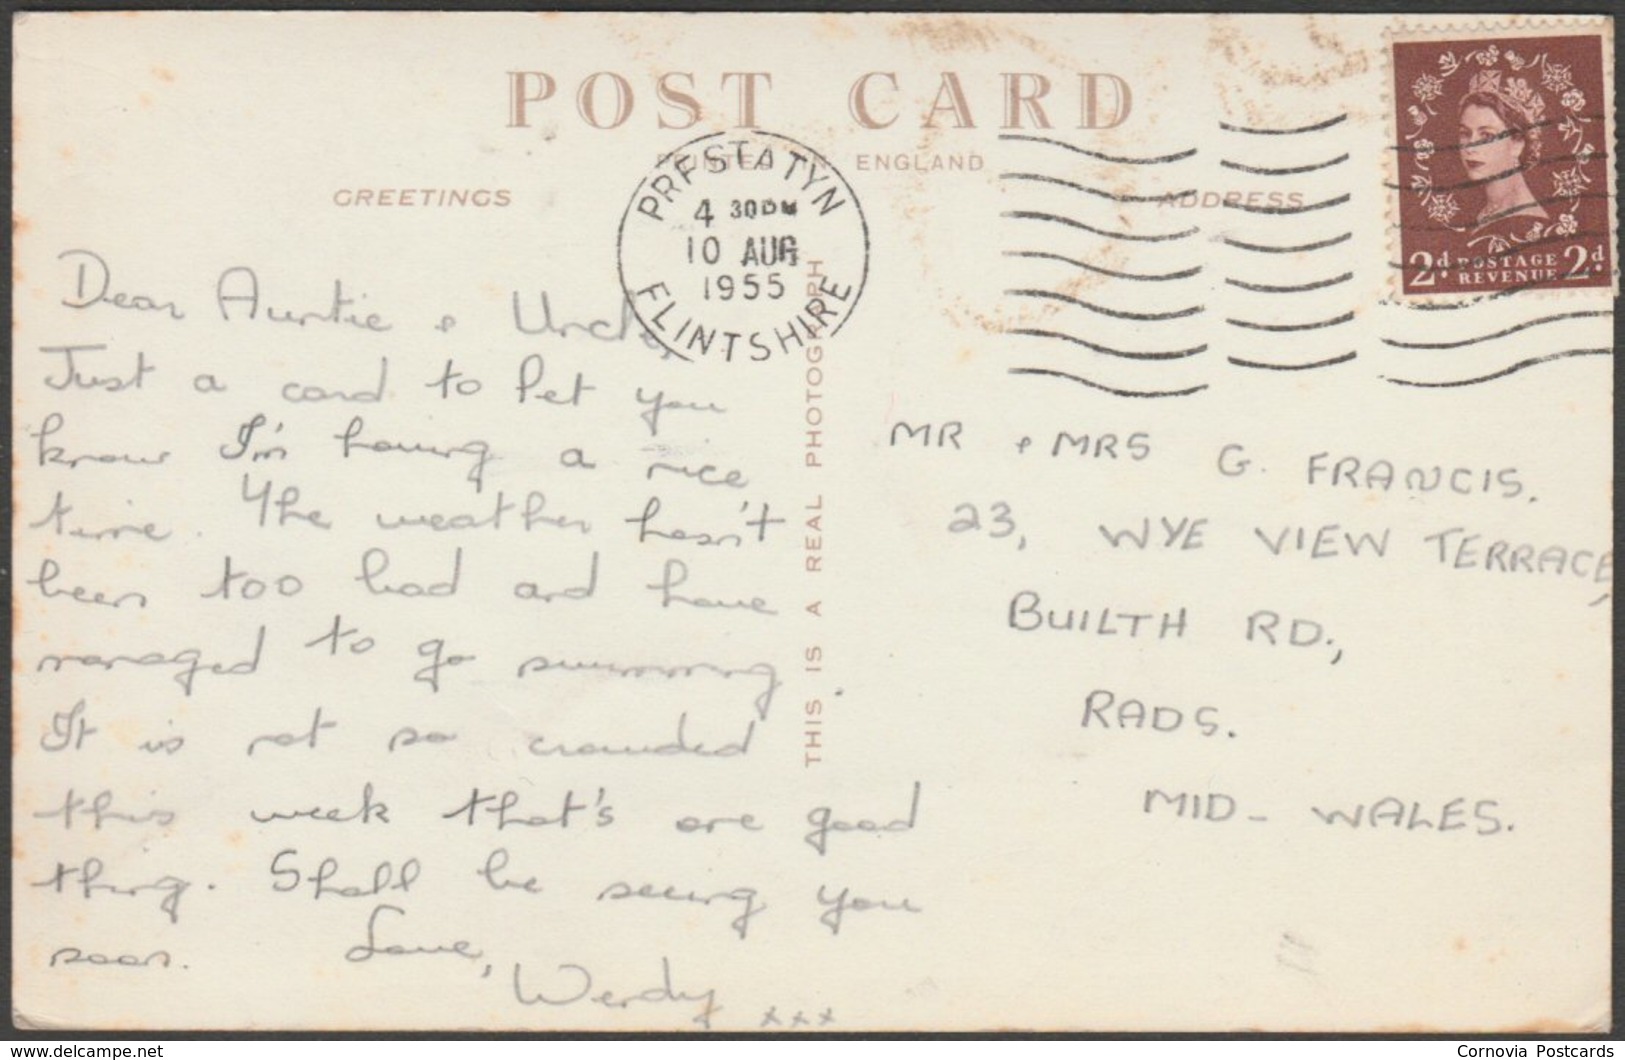 POST CARD
PRINTED IN ENGLAND
GREETINGS
ADDRESS
PRESTATYN
4 30PM
10 AUG
1955
FLINTSHIRE
2d. POSTAGE REVENUE 2d.
Dear Auntie & Uncle,
Just a card to let you
know I'm having a nice
time. The weather hasn't
been too bad and have
managed to go swimming.
It is not so crowded
this week that's one good
thing. Shall be seeing you
soon. Love,
Wendy xxx
THIS IS A REAL PHOTOGRAPH
MR & MRS G. FRANCIS.
23, WYE VIEW TERRACE,
BUILTH RD.,
RADS.
MID-WALES.
http://www.delcampe.net
Cornovia Postcards